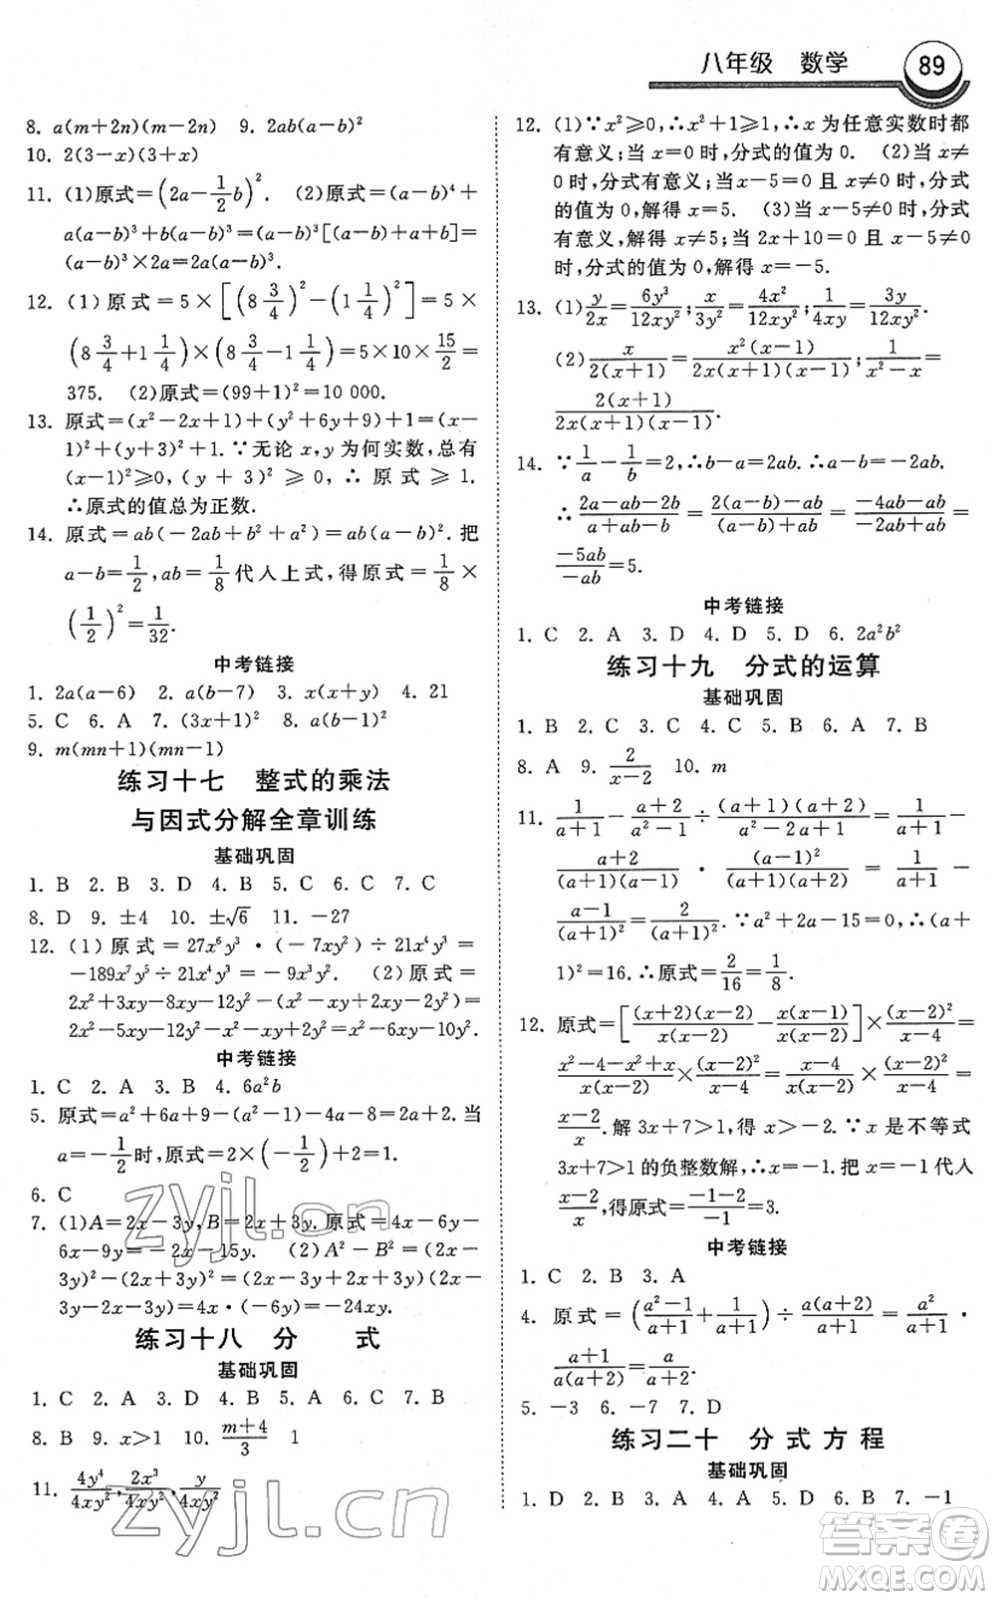 八年级 数学 89
8. a(m+2n)(m-2n) 9. 2ab(a-b)²
10. 2(3-x)(3+x)
11. (1)原式=(2a-1/2b)². (2)原式=(a-b)⁴+
a(a-b)³+b(a-b)³=(a-b)³[(a-b)+a+b]=
(a-b)³×2a=2a(a-b)³.
12. (1)原式=5×[(8 3/4)²-(1 1/4)²]=5×
(8 3/4+1 1/4)×(8 3/4-1 1/4)=5×10×15/2=
375. (2)原式=(99+1)²=10 000.
13. 原式=(x²-2x+1)+(y²+6y+9)+1=(x-
1)²+(y+3)²+1.∵无论 x,y 为何实数,总有
(x-1)²≥0,(y+3)²≥0,∴原式≥1.
∴原式的值总为正数.
14. 原式=ab(-2ab+b²+a²)=ab(a-b)².把
a-b=1/2,ab=1/8代入上式,得原式=1/8×
(1/2)²=1/32.
中考链接
1. 2a(a-6) 2. a(b-7) 3. x(x+y) 4. 21
5. C 6. A 7. (3x+1)² 8. a(a-b)²
9. m(mn+1)(mn-1)
练习十七 整式的乘法
与因式分解全章训练
基础巩固
1. B 2. B 3. D 4. B 5. C 6. C 7. C
8. D 9. ±4 10. ±√6 11. -27
12. (1)原式=27x⁶y³·(-7xy²)÷21x⁴y³=
-189x⁷y⁵÷21x⁴y³=-9x³y². (2)原式=
2x²+3xy-8xy-12y²-(x²-4xy+xy-4y²)=
2x²-5xy-12y²-x²-xy+4xy+4y²=x²-2xy-8y².
中考链接
1. C 2. A 3. B 4. 6a²b
5. 原式=a²+6a+9-(a²-1)-4a-8=2a+2.当
a=-1/2时,原式=2×(-1/2)+2=1.
6. C
7. (1)A=2x-3y,B=2x+3y.原式=4x-6y-
6x-9y=-2x-15y. (2)A²-B²=(2x-
3y)²-(2x+3y)²=(2x-3y+2x+3y)(2x-
3y-2x-3y)=4x·(-6y)=-24xy.
练习十八 分 式
基础巩固
1. C 2. A 3. D 4. D 5. D 6. C 7. B
8. B 9. x>1 10. (m+4)/3 1
11. 4y⁴/4xy²,2x³/4xy²,y/4xy²
12. (1)∵x²≥0,∴x²+1≥1,∴x为任意实数时都
有意义;当 x=0 时,分式的值为 0. (2)当 x≠
0 时,分式有意义;当 x-5=0 且 x≠0 时,分式
的值为 0,解得 x=5. (3)当 x-5≠0 时,分式
有意义,解得 x≠5;当 2x+10=0 且 x-5≠0
时,分式的值为 0,解得 x=-5.
13. (1)y/2x=6y³/12xy²;x/3y²=4x²/12xy²;1/4xy=3y/12xy².
(2)x/2(x+1)=x²(x-1)/2x(x+1)(x-1);1/(x²-x)=
2(x+1)/2x(x+1)(x-1).
14. ∵1/a-1/b=2,∴b-a=2ab.∴a-b=-2ab.
∴(2a-ab-2b)/(a+ab-b)=(2(a-b)-ab)/((a-b)+ab)=(-4ab-ab)/(-2ab+ab)=
-5ab/-ab=5.
中考链接
1. C 2. A 3. D 4. D 5. D 6. 2a²b²
练习十九 分式的运算
基础巩固
1. B 2. C 3. C 4. C 5. B 6. A 7. B
8. A 9. 2/(x-2) 10. m
11. 1/(a+1)-(a+2)/(a²-1)÷(a+1)(a+2)/(a²-2a+1)=1/(a+1)-
(a+2)/(a+1)(a-1)·(a-1)²/(a+1)(a+2)=1/(a+1)-
(a-1)/(a+1)²=2/(a+1)².∵a²+2a-15=0,∴(a+
1)²=16.∴原式=2/16=1/8.
12. 原式=[(x+2)(x-2)/x(x-2)-x(x-1)/x(x-2)]×(x-2)²/(x-4)=
(x²-4-x²+x)/x(x-2)×(x-2)²/(x-4)=(x-4)/x(x-2)×(x-2)²/(x-4)=
(x-2)/x.解 3x+7>1,得 x>-2.∵x 是不等式
3x+7>1的负整数解,∴x=-1.把 x=-1代入
(x-2)/x,得原式=(-1-2)/-1=3.
中考链接
1. C 2. C 3. A
4. 原式=((a²-1)/(a+1)+1/(a+1))÷a(a+2)/(a+1)=a²/(a+1)·
(a+1)/a(a+2)=a/(a+2).
5. -3 6. -7 7. D
练习二十 分式方程
基础巩固
1. D 2. A 3. D 4. A 5. D 6. B 7. -1
zyjl.cn
zyjl.cn
答案卷
MXQE.COM